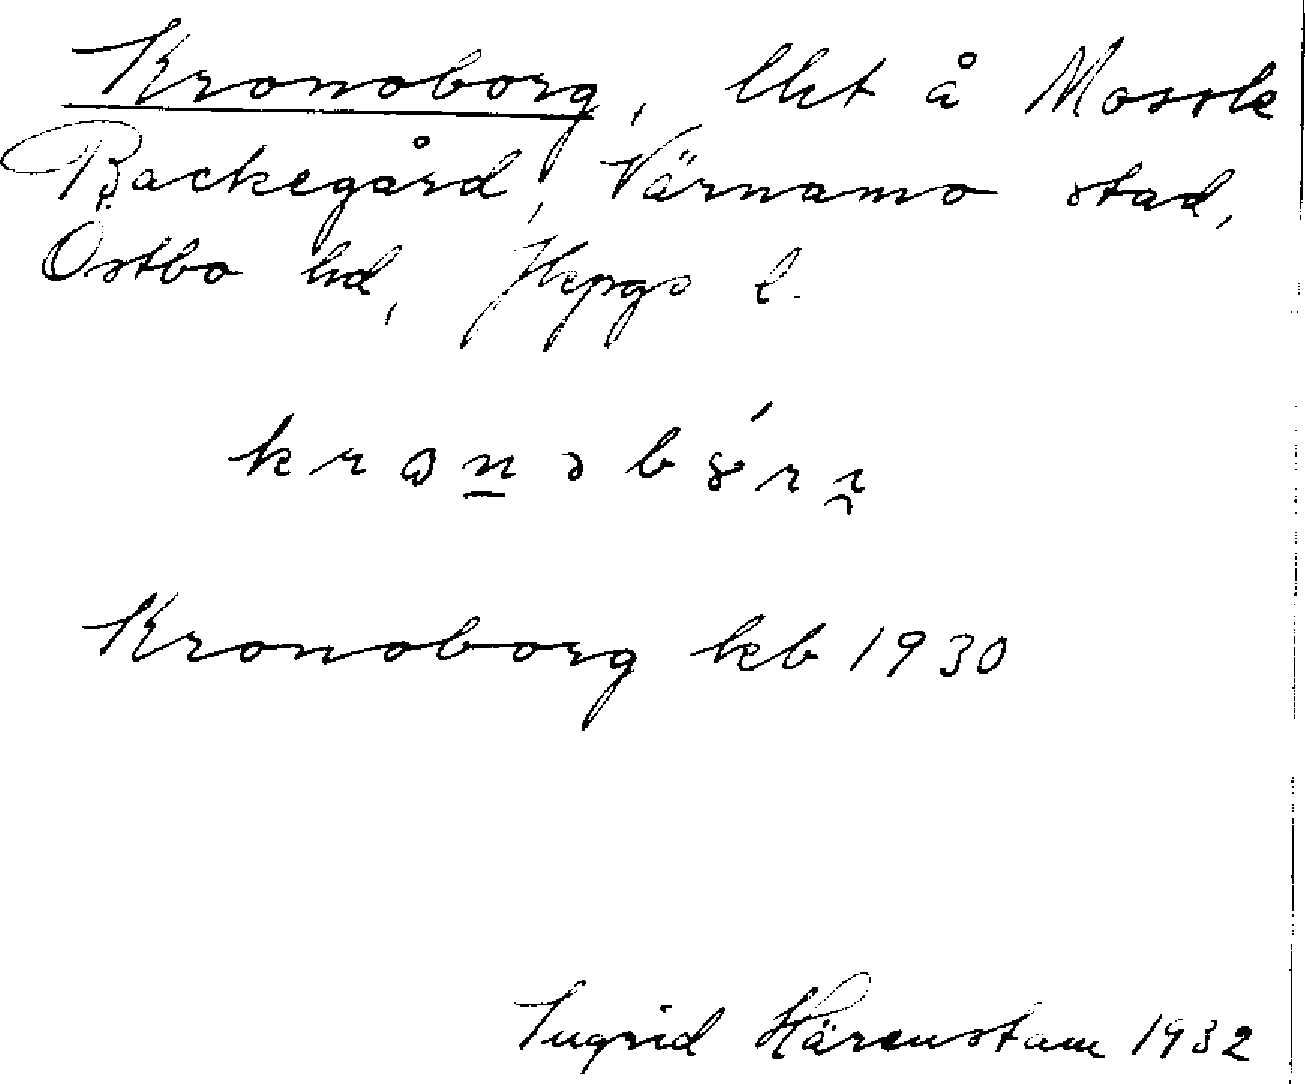 Kronoborg, lht å Mossle
Backegård, Värnamo stad,
Östbo hd, Jkpgs l.
Kronoborg kb 1930
Ingrid Härenstam 1932